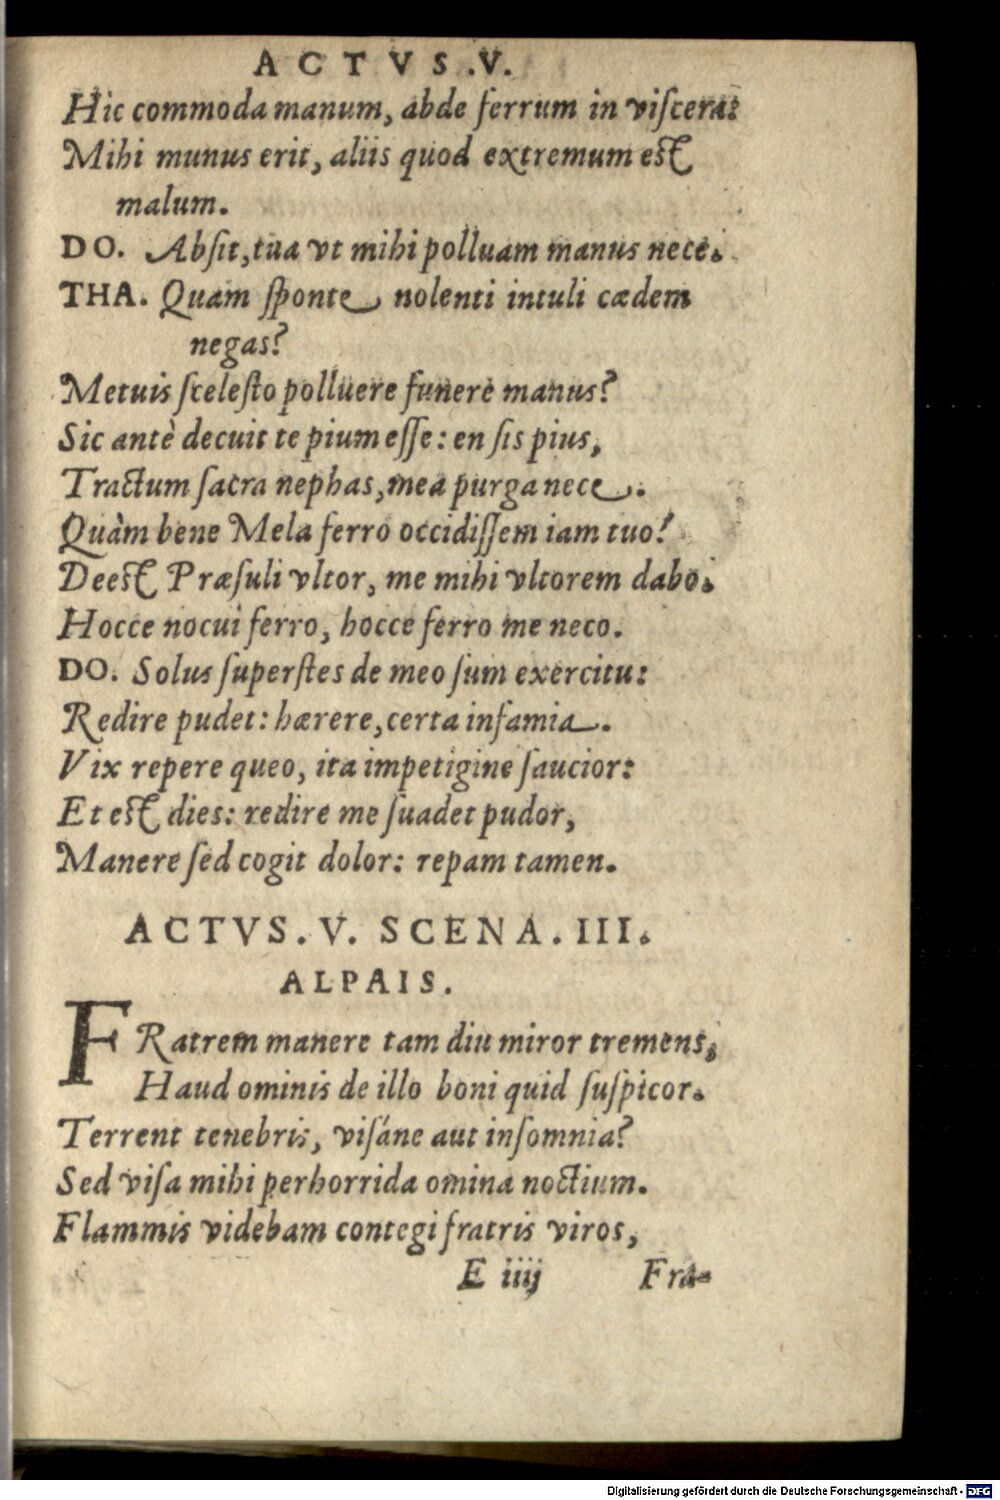 ACTVS.V.
Hic commoda manum, abde ferrum in viſcera:
Mihi munus erit, aliis quod extremum eſt
malum.
DO. Abſit, tua vt mihi polluam manus nece.
THA. Quam ſponte nolenti intuli cædem
negas?
Metuis ſceleſto polluere funere manus?
Sic antè decuit te pium eſſe: en ſis pius,
Tractum ſacra nephas, mea purga nece.
Quàm bene Mela ferro occidiſſem iam tuo!
Deeſt Præſuli vltor, me mihi vltorem dabo.
Hocce nocui ferro, hocce ferro me neco.
DO. Solus ſuperſtes de meo ſum exercitu:
Redire pudet: hærere, certa infamia.
Vix repere queo, ita impetigine ſaucior:
Et eſt dies: redire me ſuadet pudor,
Manere ſed cogit dolor: repam tamen.
ACTVS.V. SCENA.III.
ALPAIS.
FRatrem manere tam diu miror tremens,
Haud ominis de illo boni quid ſuſpicor.
Terrent tenebris, viſáne aut inſomnia?
Sed viſa mihi perhorrida omina noctium.
Flammis videbam contegi fratris viros,
E iiij Fra-
Digitalisierung gefördert durch die Deutsche Forschungsgemeinschaft - DFG